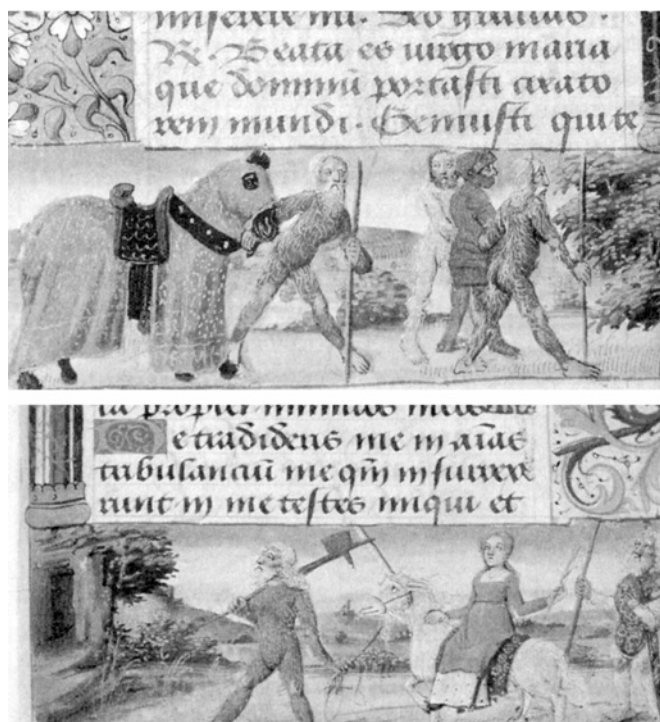 miserere mi. Deo gratias.
R. Beata es virgo maria
que dominū portasti creato
rem mundi. Genuisti qui te
la propter inimicos meos
e tradideris me in aīas
tribulanciū me qm̄ insurrexe
runt in me testes iniqui et